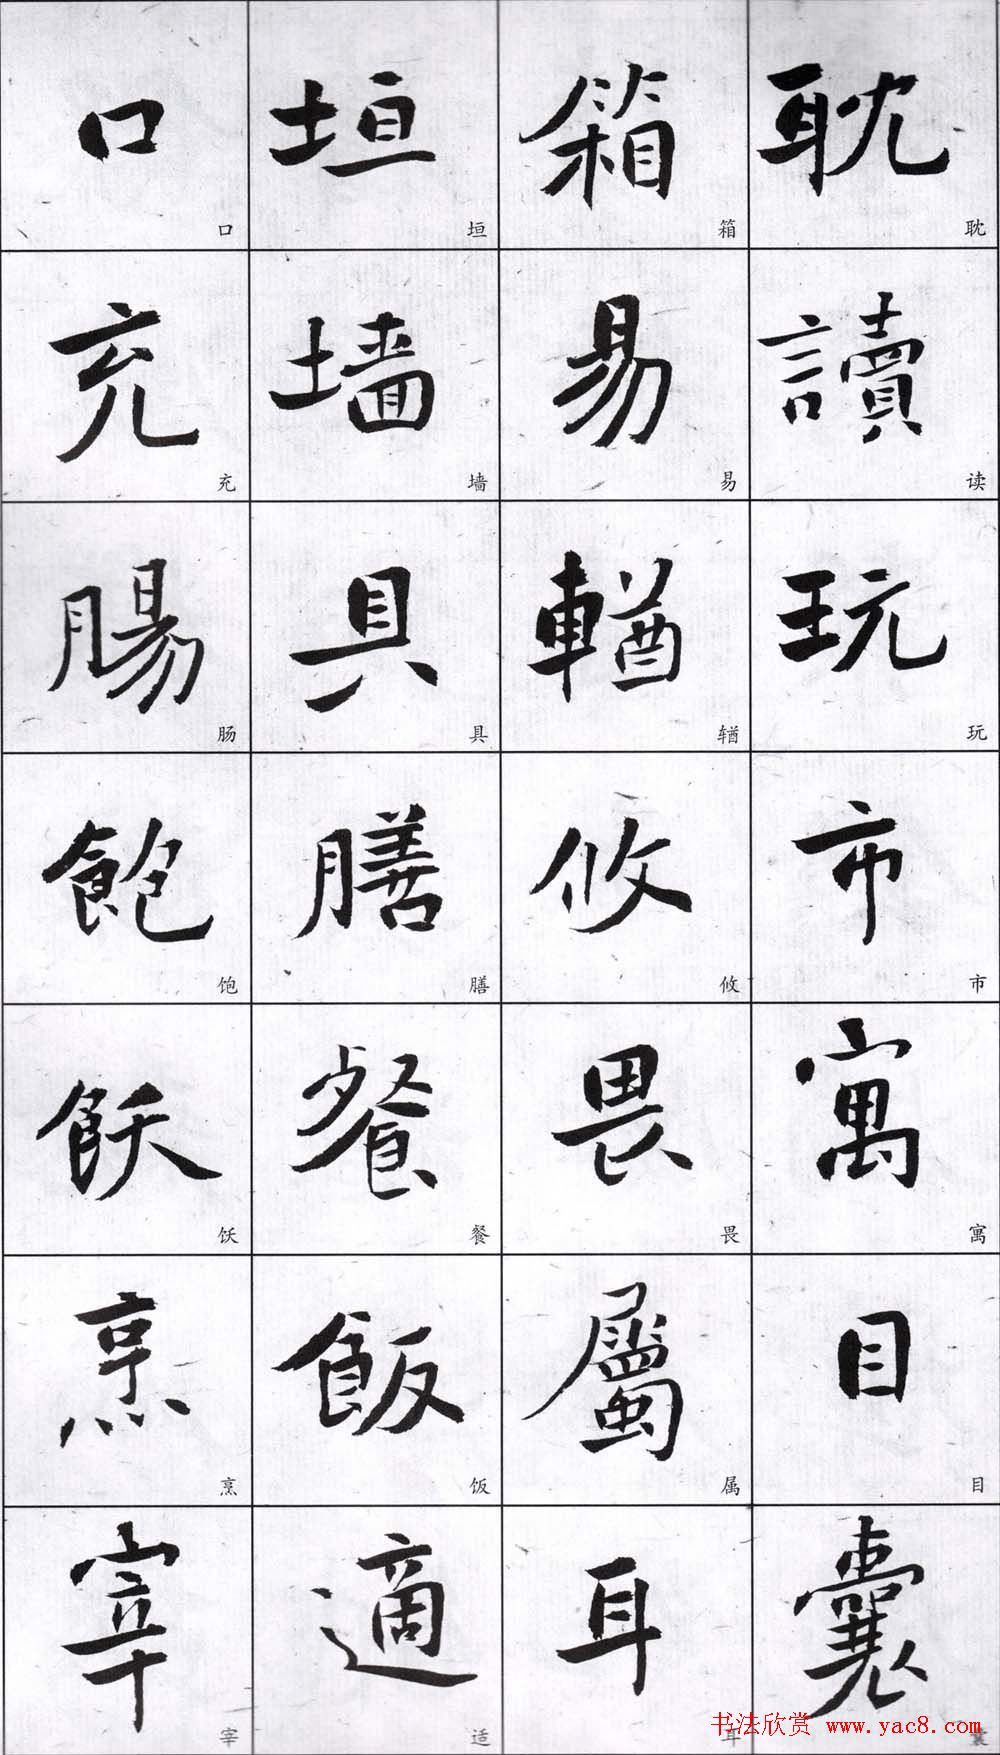 耽讀玩市寓目囊
耽读玩市寓目囊
箱易輶攸畏屬耳
箱易𬨎攸畏属耳
垣墙具膳餐飯適
垣墙具膳餐饭适
口充腸飽飫烹宰
口充肠饱饫烹宰
书法欣赏 www.yac8.com